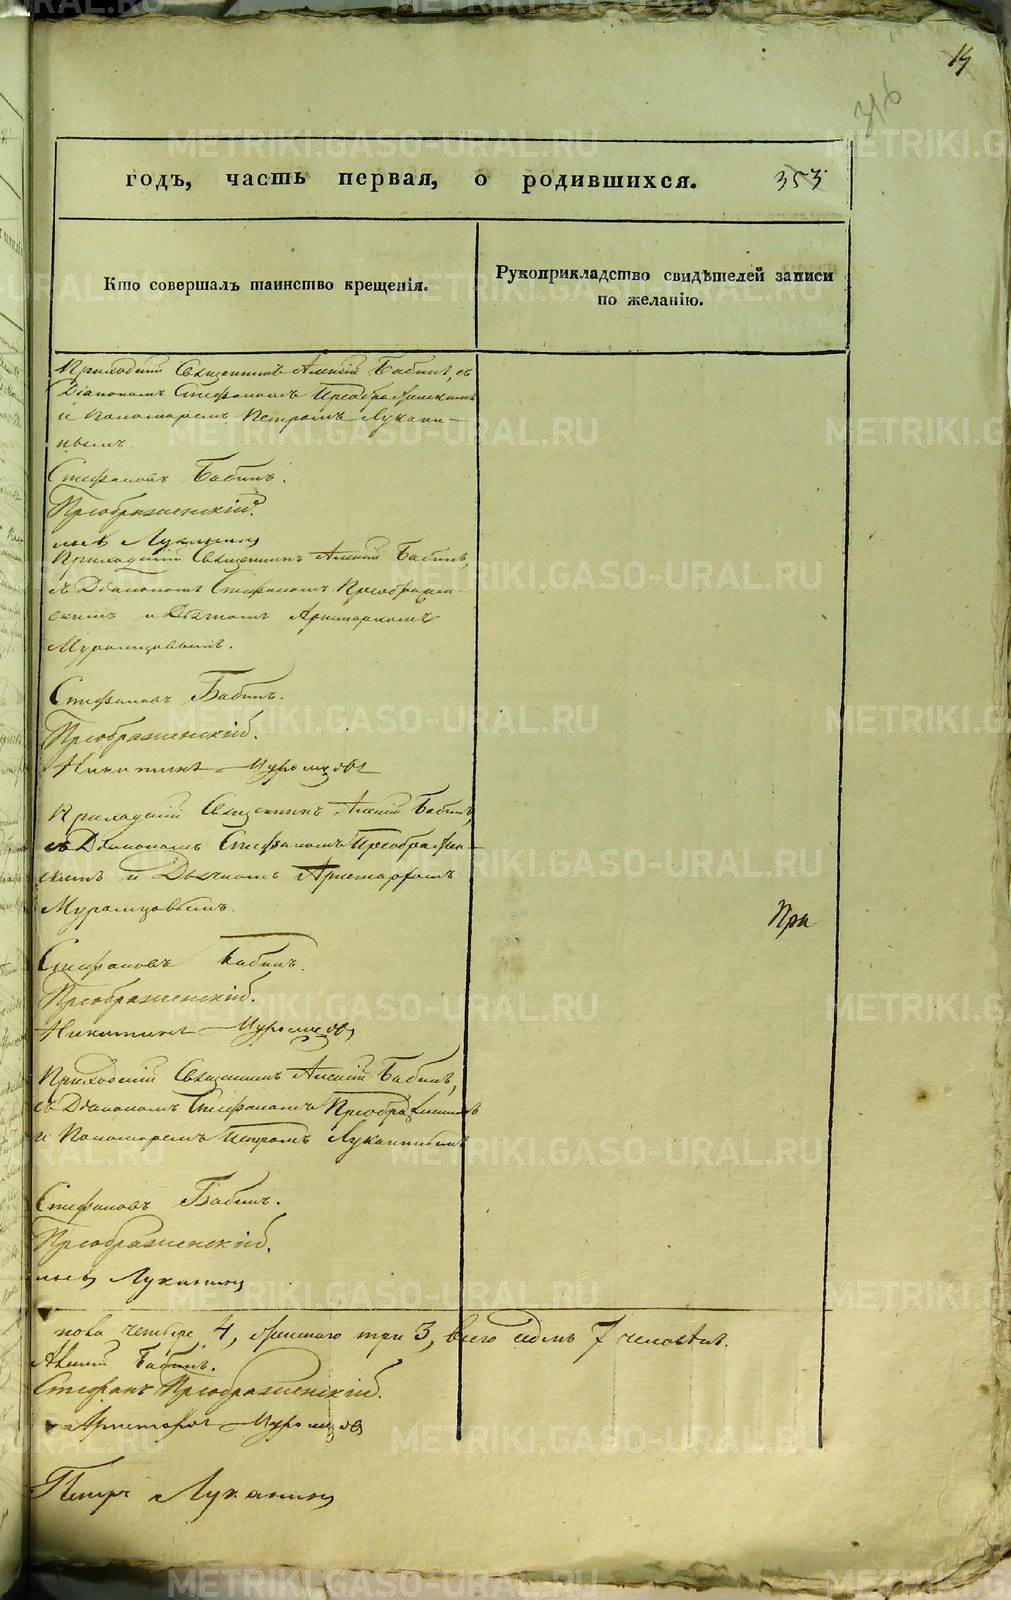 14
316
годъ, часть первая, о родившихся. 353
Кто совершалъ таинство крещенія.
Рукоприкладство свидѣтелей записи
по желанію.
Приходскій Священникъ Алексій Бабинъ, съ
Діакономъ Стефаномъ Преображенскимъ
и Пономаремъ Петромъ Лукани-
нымъ.
Стефановъ Бабинъ.
Преображенскій.
Луканинъ
Приходскій Священникъ Алексій Бабинъ,
съ Діакономъ Стефаномъ Преображен-
скимъ и Дьячкомъ Аристархомъ
Муромцовымъ.
Стефановъ Бабинъ.
Преображенскій.
Никитинъ Муромцовъ
Приходскій Священникъ Алексій Бабинъ,
съ Діакономъ Стефаномъ Преображен-
скимъ и Дьячкомъ Аристархомъ
Муромцовымъ.
При
Стефановъ Бабинъ.
Преображенскій.
Никитинъ Муромцовъ
Приходскій Священникъ Алексій Бабинъ,
съ Діакономъ Стефаномъ Преображенскимъ
и Пономаремъ Петромъ Луканинымъ
Стефановъ Бабинъ.
Преображенскій.
Луканинъ
пола четыре 4, женскаго три 3, всего седмь 7 человѣкъ.
Алексій Бабинъ.
Стефанъ Преображенскій.
Аристархъ Муромцовъ
Петръ Луканинъ
METRIKI.GASO-URAL.RU